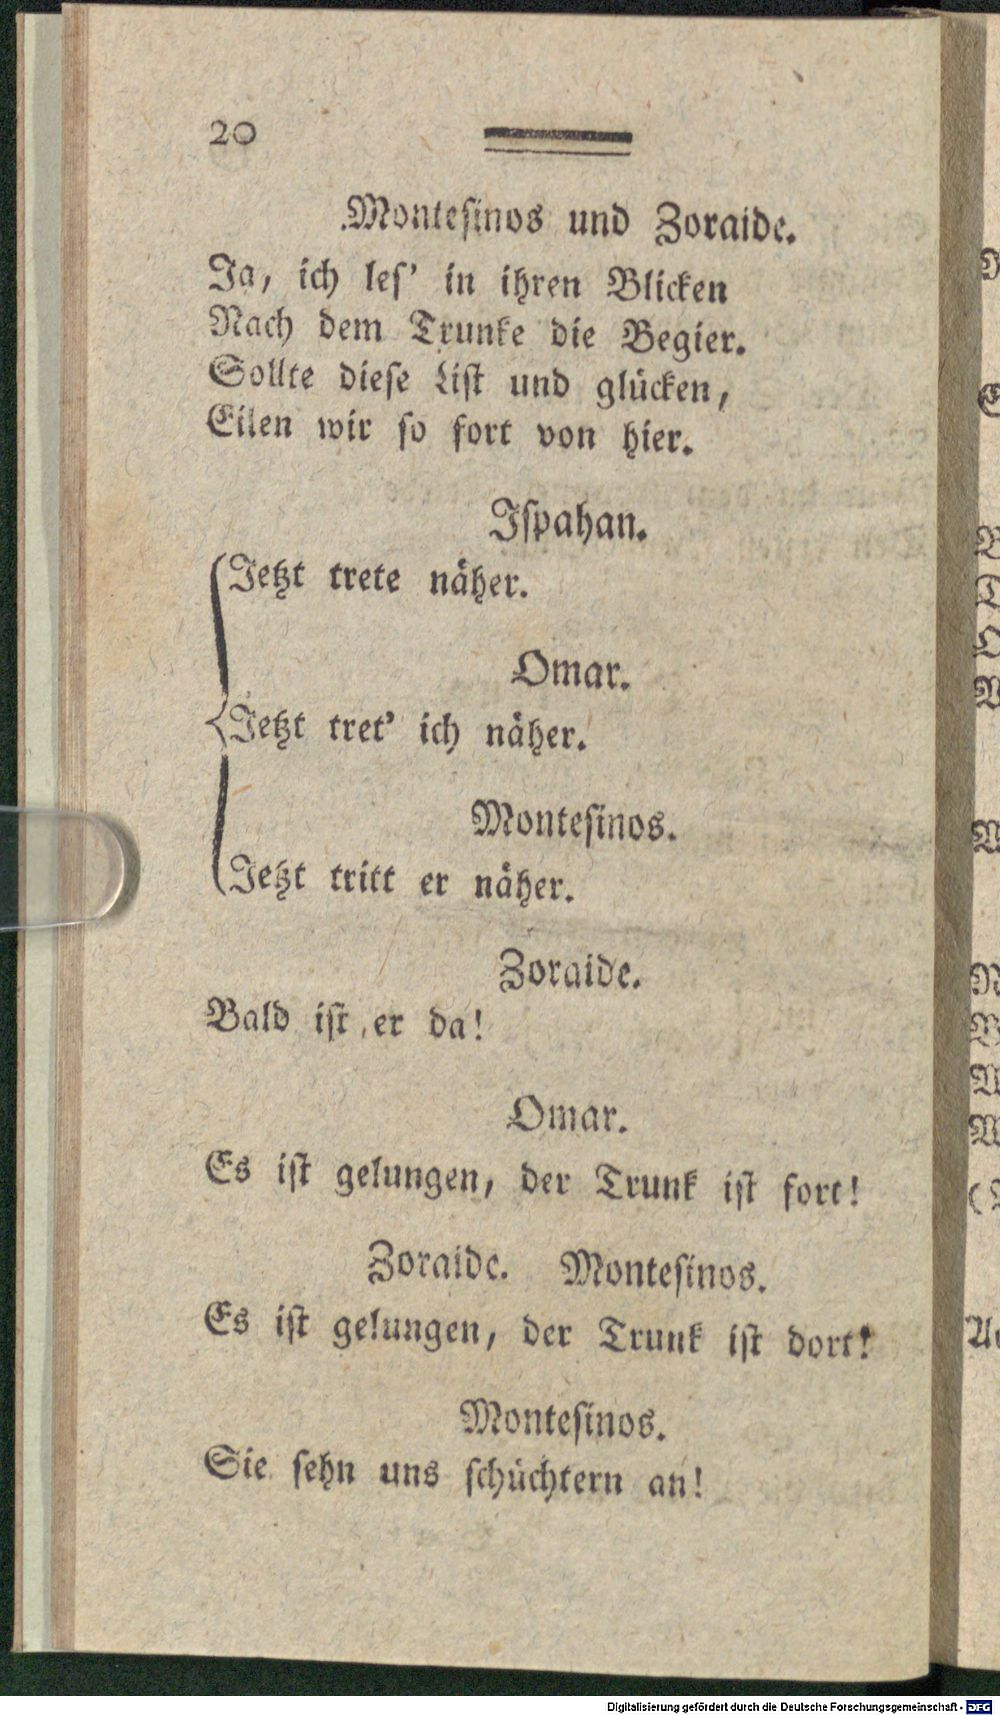 20
Montesinos und Zoraide.
Ja, ich les' in ihren Blicken
Nach dem Trunke die Begier.
Sollte diese List und glücken,
Eilen wir so fort von hier.
Ispahan.
Jetzt trete näher.
Omar.
Jetzt tret' ich näher.
Montesinos.
Jetzt tritt er näher.
Zoraide.
Bald ist er da!
Omar.
Es ist gelungen, der Trunk ist fort!
Zoraide. Montesinos.
Es ist gelungen, der Trunk ist dort!
Montesinos.
Sie sehn uns schüchtern an!
Digitalisierung gefördert durch die Deutsche Forschungsgemeinschaft - DFG